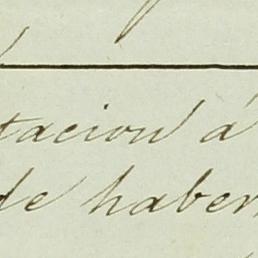 tacion á
de haber